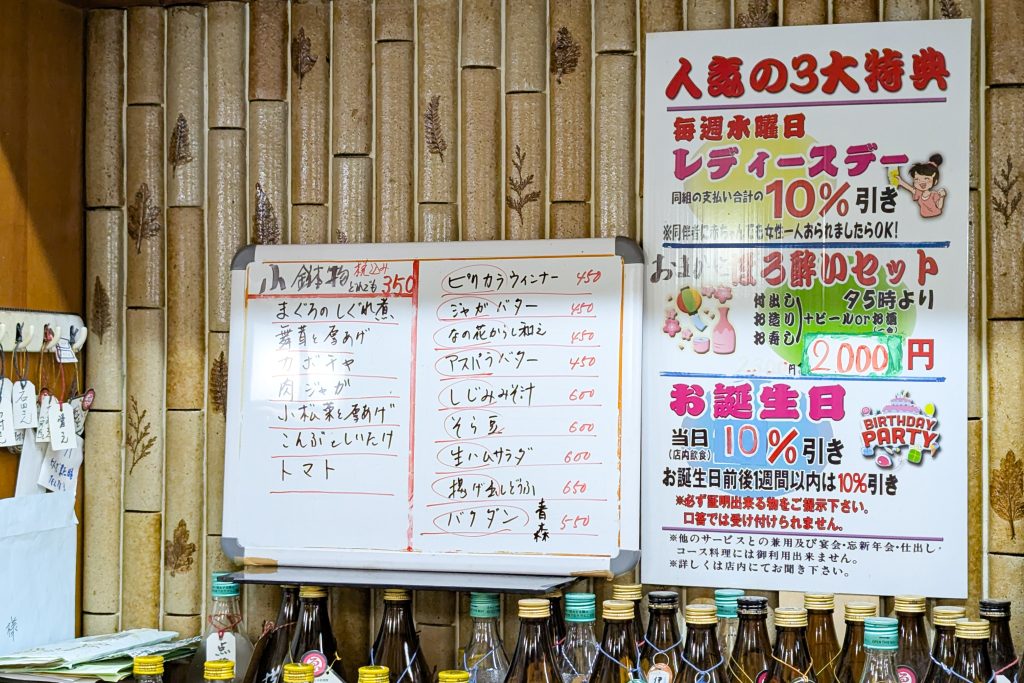 小鉢物 税込み どれでも 350
まぐろのしぐれ煮
舞茸と厚あげ
カボチャ
肉ジャガ
小松菜と厚あげ
こんぶとしいたけ
トマト
ピリカラウィンナー 450
ジャガバター 450
なの花からし和え 450
アスパラバター 450
しじみみそ汁 600
そら豆 600
生ハムサラダ 600
揚げ出しどうふ 650
バクダン 青森 550
人気の3大特典
毎週水曜日
レディースデー
同組の支払い合計の10%引き
※同伴者に赤ちゃんでも女性一人おられましたらOK!
ほろ酔いセット
付出し
お造り
お寿し
+ビールorお酒
夕5時より
2000円
お誕生日
当日
(店内飲食)
10%引き
BIRTHDAY
PARTY
お誕生日前後1週間以内は10%引き
※必ず証明出来る物をご提示下さい。
口答では受け付けられません。
※他のサービスとの兼用及び宴会・忘新年会・仕出し・
コース料理には御利用出来ません。
※詳しくは店内にてお聞き下さい。
様